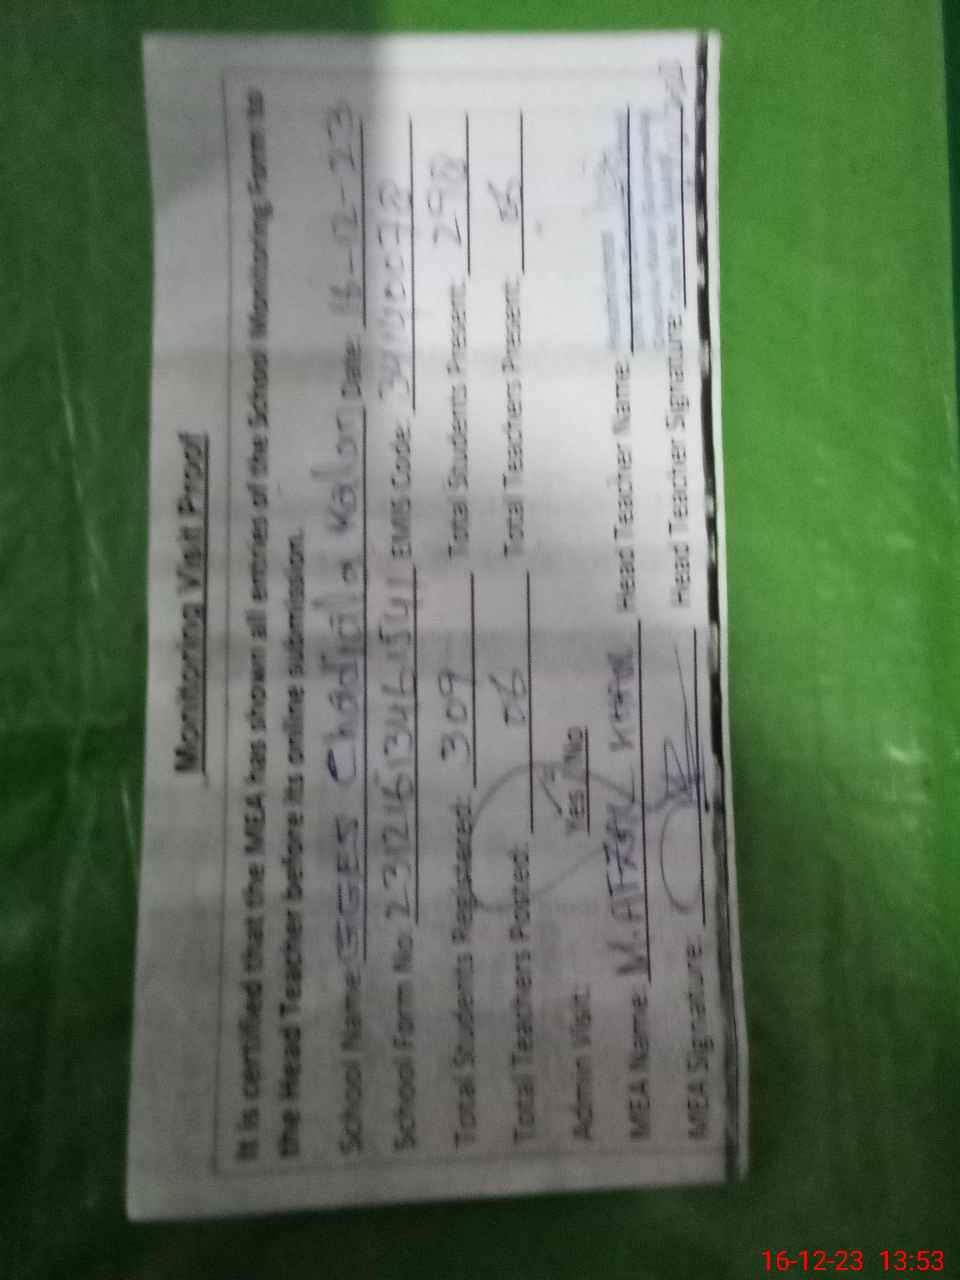 Monitoring Visit Proof
It is certified that the MEA has shown all entries of the School Monitoring Form to
the Head Teacher before its online submission.
School Name: GGES Chadhila Kalan Date: 16-12-23
School Form No: 23121613461541 EMIS Code: 34140078
Total Students Registered: 309 Total Students Present: 298
Total Teachers Posted: 06 Total Teachers Present:
Admin Visit: Yes/No
MEA Name: M. AFZAL KHAN Head Teacher Name:
MEA Signature: Head Teacher Signature:
16-12-23 13:53